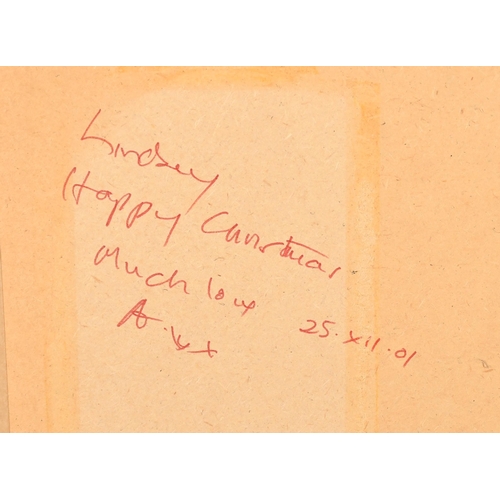 Lindsey
Happy Christmas
Much love
A. xx 25.xii.01